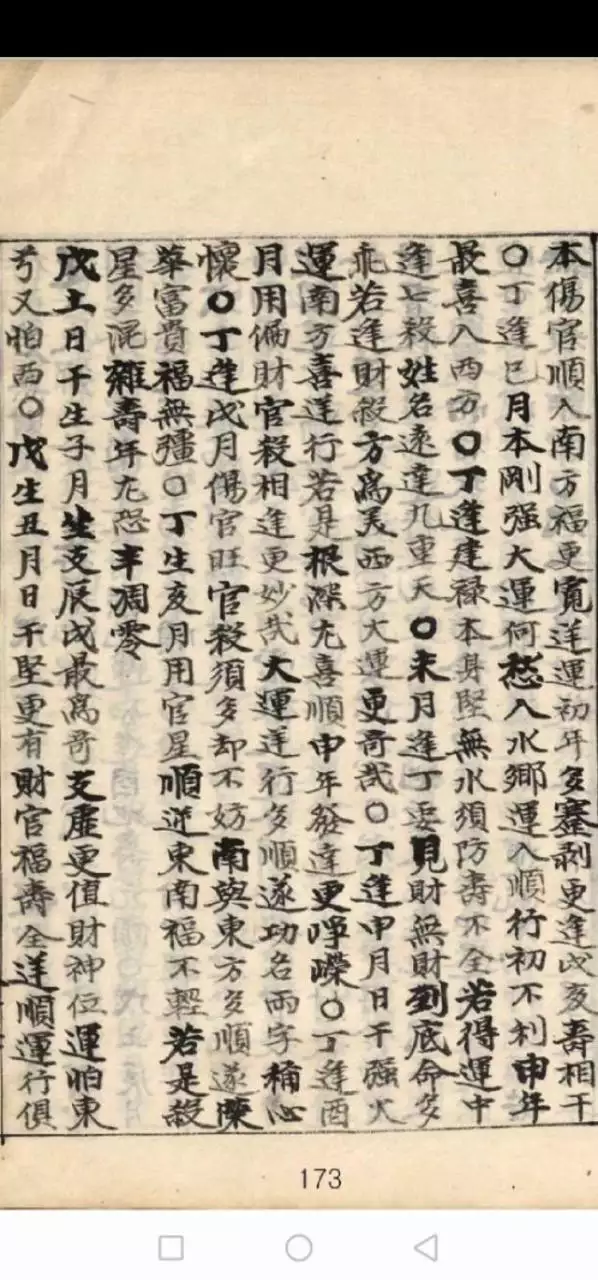 本傷官順入南方福更寬逆運初年多蹇剥更逢戌亥壽相干
〇丁逢巳月本剛强大運何愁入水鄉運入順行初不利申年
最喜入西方〇丁逢建禄本身堅無水須防壽不全若得運中
逢七殺姓名遠達九重天〇未月逢丁要見財無財到底命多
乖若逢財殺方為美西方大運更奇哉〇丁逢申月日干强火
運南方喜逆行若是根深尤喜順申年發達更崢嶸〇丁逢酉
月用偏財官殺相逢更妙哉大運逆行多順遂功名兩字稱心
懷〇丁逢戌月傷官旺官殺須多却不妨南與東方多順遂榮
華富貴福無疆〇丁生亥月用官星順逆東南福不輕若是殺
星多混雜壽年尤恐半凋零
戊土日干生子月坐支辰戌最為奇支虛更值財神位運怕東
兮又怕西〇戊生丑月日干堅更有財官福壽全逆順運行俱
173